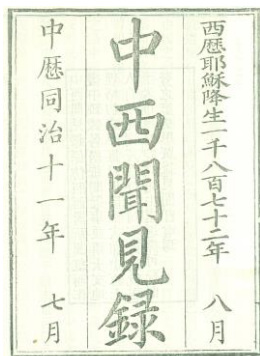 西歷耶穌降生一千八百七十二年 八月
中西聞見録
中歷同治十一年 七月